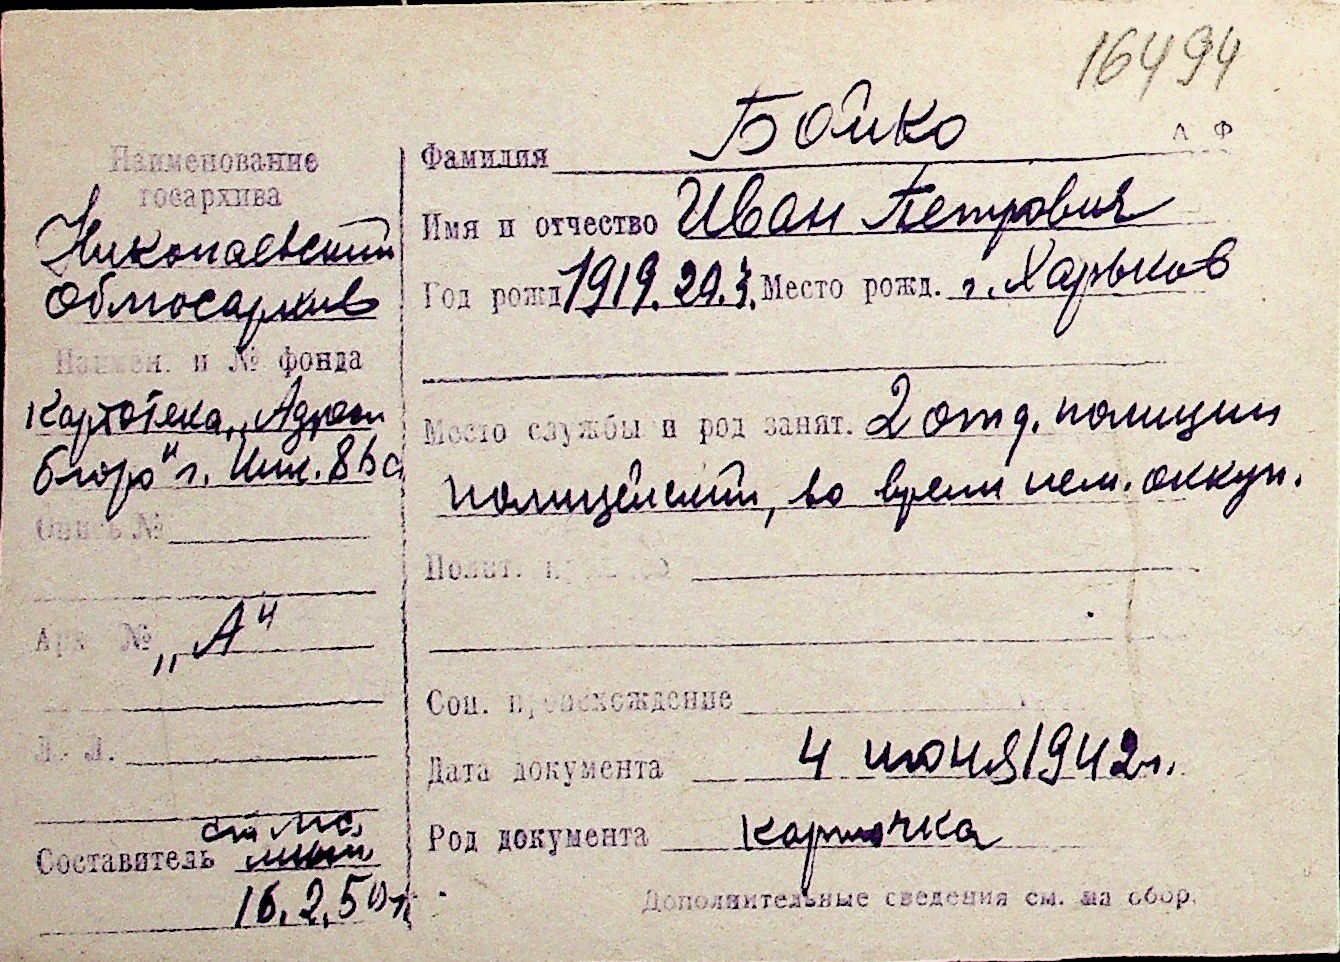 16494
Наименование
госархива
Николаевский
Облгосархив
Наимен. и № фонда
Картотека „Адресн
бюро" г. Ник.
Опись №
Арх №
„А"
Л. Л.
Составитель
16.2.50г.
Л Ф
Фамилия Бойко
Имя и отчество Иван Петрович
Год рожд 1919.20.3. Место рожд. г. Харьков
Место службы и род занят. 2 отд. полиции
полицейский, во время нем. оккуп.
Полит.
Соц. происхождение
Дата документа 4 июня 1942г.
Род документа карточка
Дополнительные сведения см. на обор.